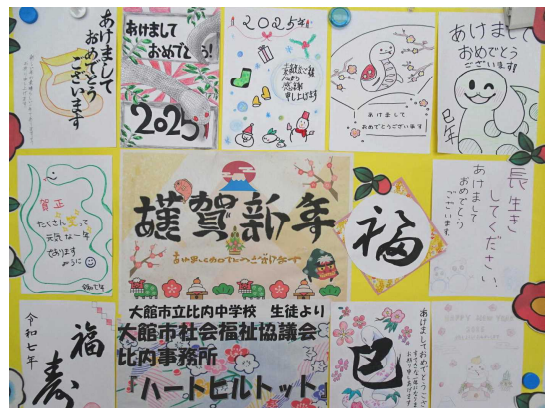 あけまして
おめでとう
ございます
あけまして
おめでとう!
2025
2025年
感謝
申し上げます
あけまして
おめでとうございます
あけまして
おめでとう
ございます!
巳年
賀正
たくさん笑って
元気な一年で
ありますように
謹賀新年
あけましておめでとうございます
福
長生き
してください。
あけまして
おめでとう
ございます。
令和七年
福
寿
大館市立比内中学校 生徒より
大館市社会福祉協議会
比内事務所
『ハートビルトット
あけましておめでとうございます
巳
HAPPY NEW YEAR